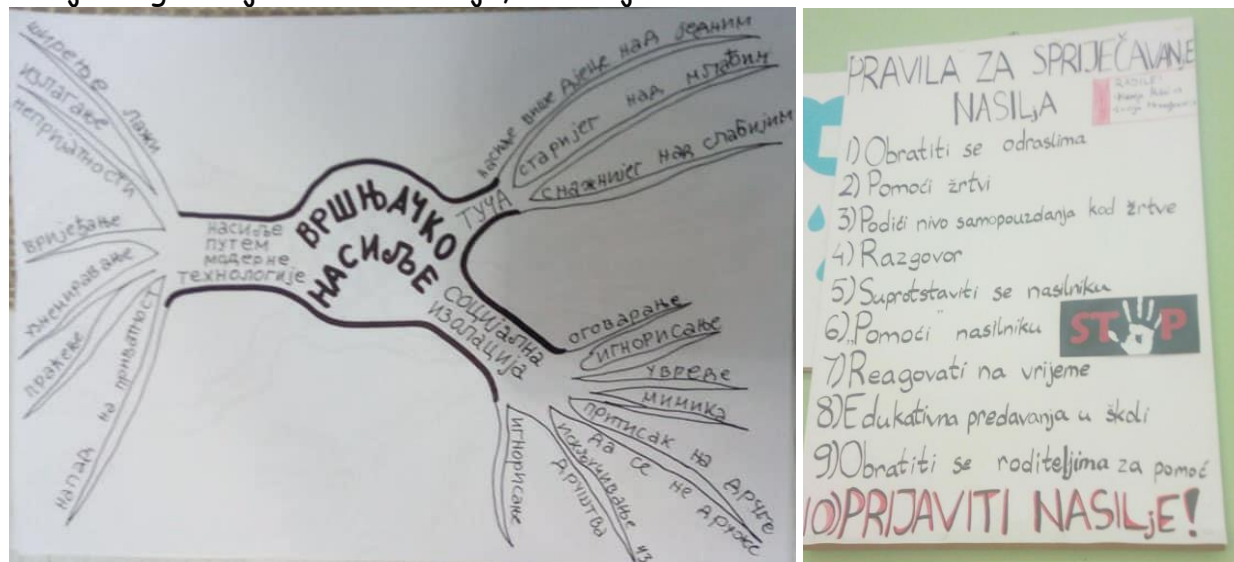 ВРШЊАЧКО
НАСИЉЕ
НАСИЉЕ
ПУТЕМ
МОДЕРНЕ
ТЕХНОЛОГИЈЕ
ШИРЕЊЕ ЛАЖИ
ИЗЛАГАЊЕ
НЕПРИЈАТНОСТИ
ВРИЈЕЂАЊЕ
УЗНЕМИРАВАЊЕ
ПРАЋЕЊЕ
НАПАД НА ПРИВАТНОСТ
ТУЧА
НАСИЉЕ ВИШЕ ДЈЕЦЕ НАД ЈЕДНИМ
СТАРИЈЕГ НАД МЛАЂИМ
СНАЖНИЈЕГ НАД СЛАБИЈИМ
СОЦИЈАЛНА
ИЗОЛАЦИЈА
ОГОВАРАЊЕ
ИГНОРИСАЊЕ
УВРЕДЕ
МИМИКА
ПРИТИСАК НА ДРУГЕ
ДА СЕ НЕ ДРУЖЕ
ИСКЉУЧИВАЊЕ ИЗ
ДРУШТВА
ИГНОРИСАЊЕ
PRAVILA ZA SPRIJEČAVANJE
NASILjA
RADILE:
1) Obratiti se odraslima
2) Pomoći žrtvi
3) Podići nivo samopouzdanja kod žrtve
4) Razgovor
5) Suprotstaviti se nasilniku
6) Pomoći nasilniku
STOP
7) Reagovati na vrijeme
8) Edukativna predavanja u školi
9) Obratiti se roditeljima za pomoć
10) PRIJAVITI NASILjE!